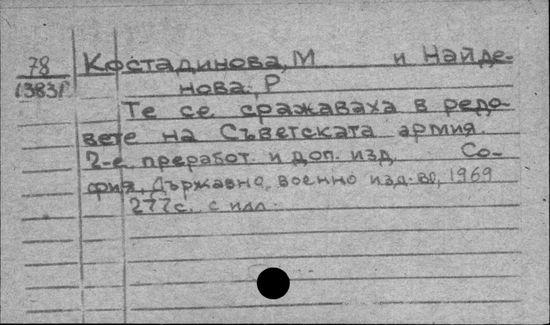 78 Костадинова, М и Найде-
13831 нова, Р
Те се сражаваха в редо-
вете на Съветската армия.
2-е преработ. и доп. изд. Со-
фия, Държавно военно изд-во, 1969
277 с. с илл.